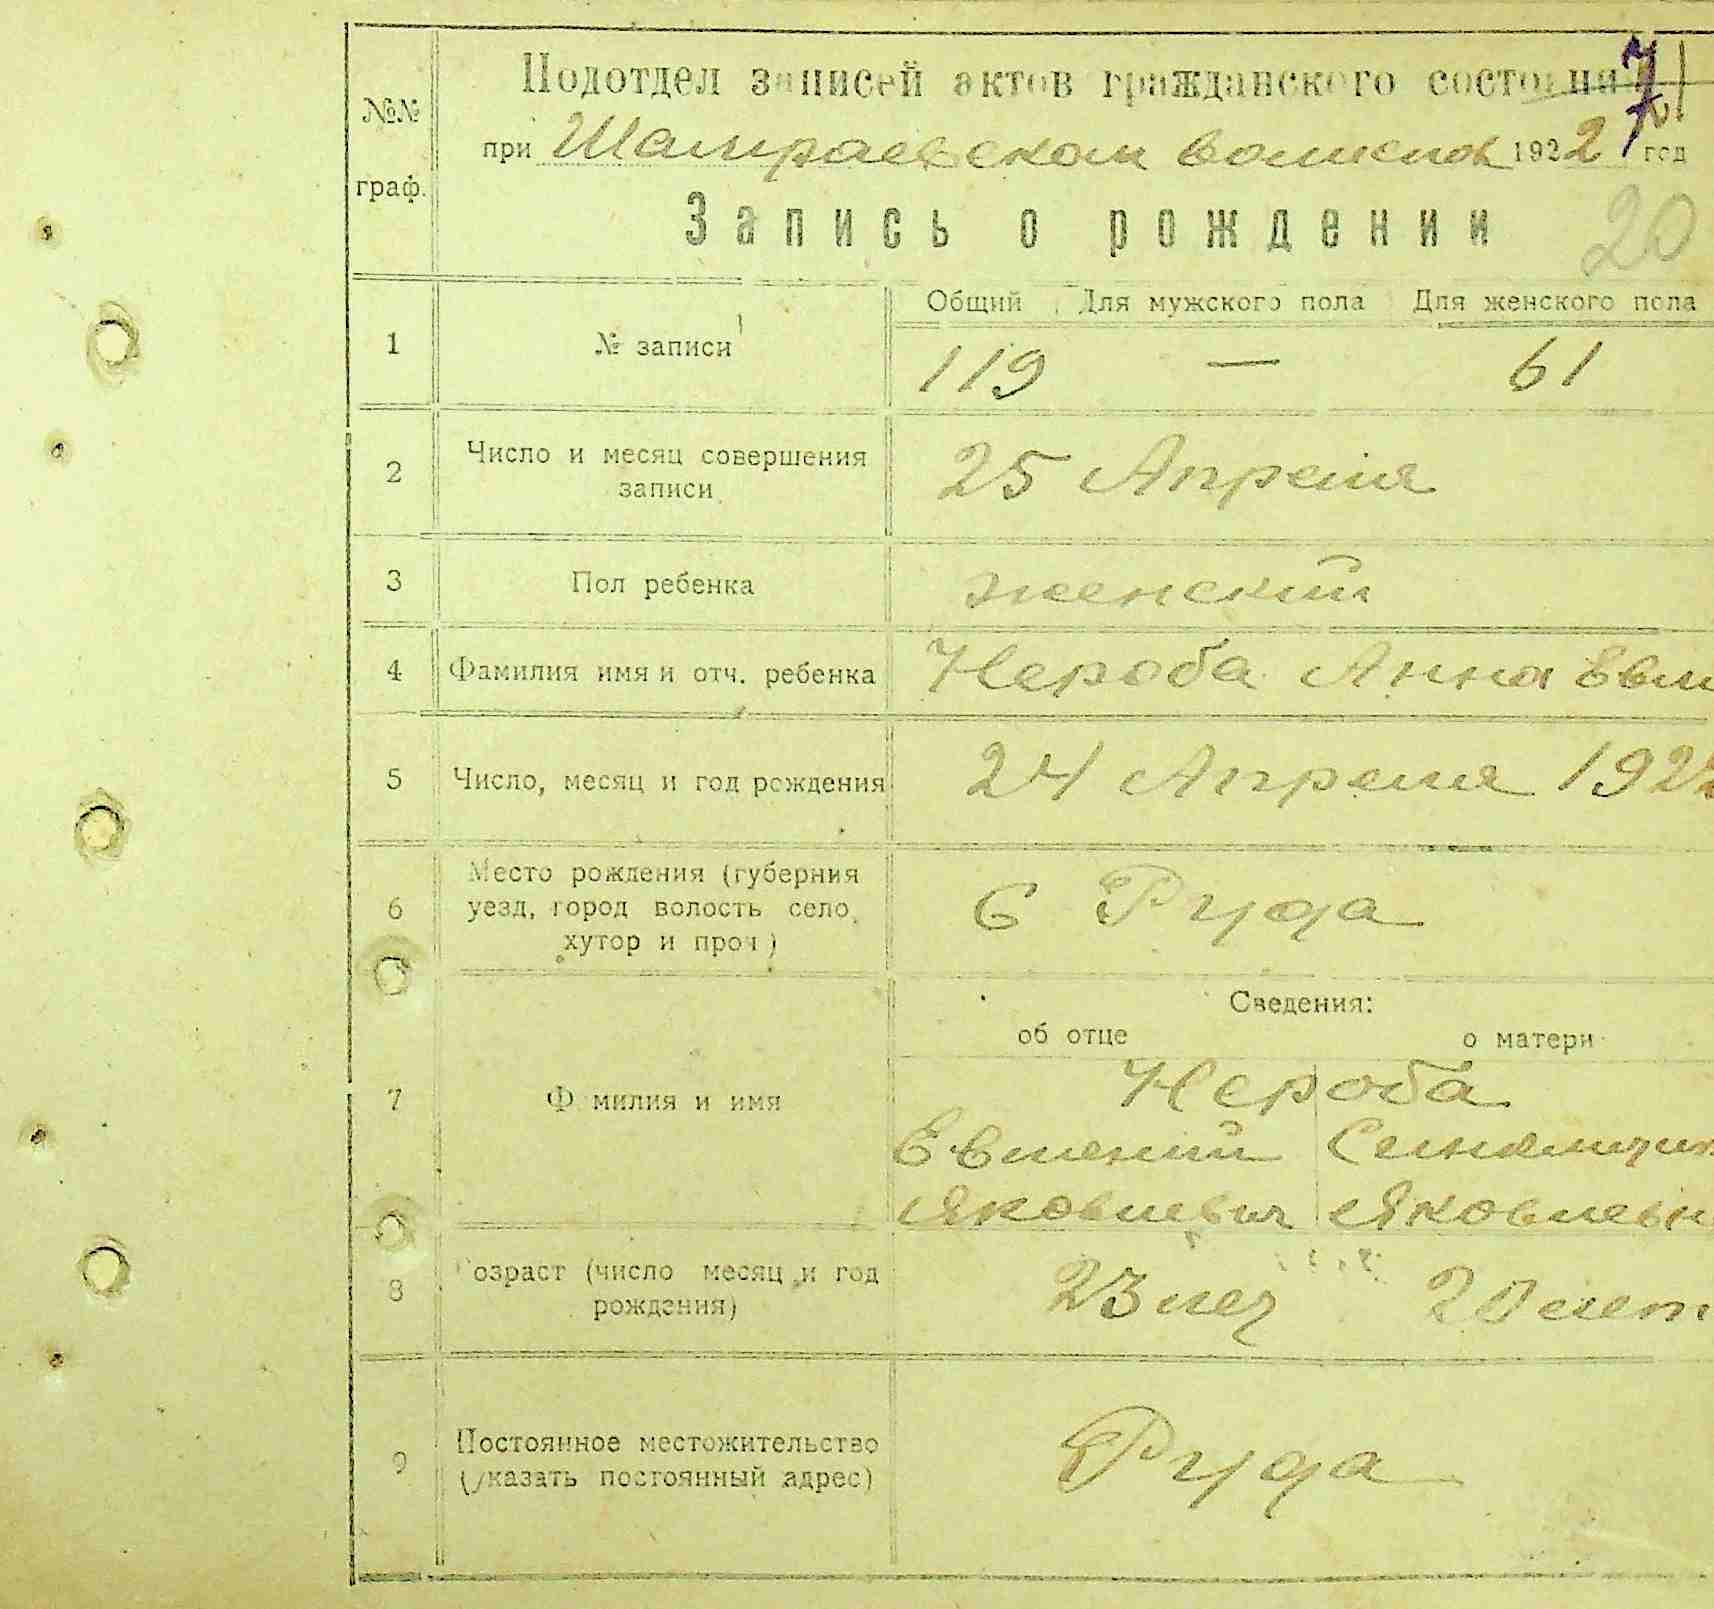 №№ граф.
Подотдел записей актов гражданского состояни
71
при Шамраевском волисполк 1922 год
Запись о рождении
20
Общий Для мужского пола Для женского пола
1 № записи 119 — 61
2 Число и месяц совершения записи 25 Апреля
3 Пол ребенка женский
4 Фамилия имя и отч. ребенка Нероба Анна Евг
5 Число, месяц и год рождения 24 Апреля 1922
6 Место рождения (губерния
уезд, город волость село,
хутор и проч) с Руда
Сведения:
об отце о матери
7 Ф милия и имя Нероба
Евгений
Яковлевич Яковлевн
8 озраст (число месяц и год
рождения) 23 лет 20 лет
9 Постоянное местожительство
(указать постоянный адрес) Руда